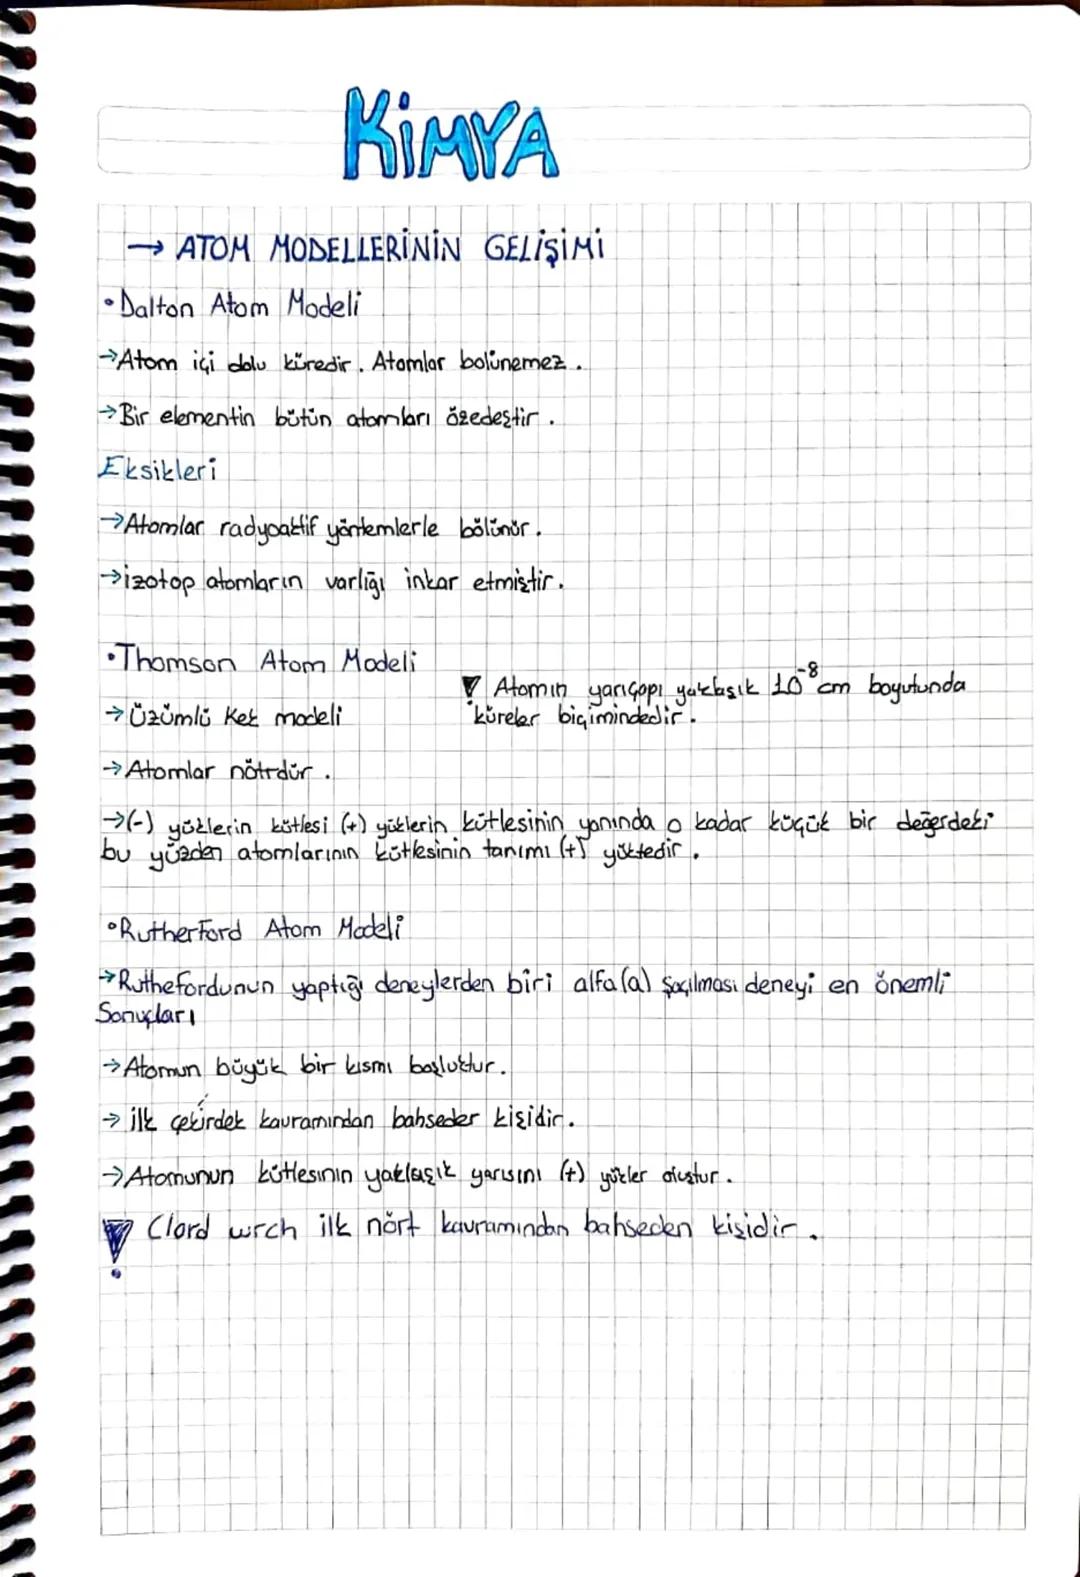 KİMYA
→ ATOM MODELLERİNİN GELİŞİMİ
• Dalton Atom Modeli
→Atom içi dolu küredir. Atomlar bolünemez.
→Bir elementin bütün atomları özedeştir.
Eksikleri
→Atomlar radyoaktif yöntemlerle bölünür.
→izotop atomların varlığı inkar etmiştir.
•Thomson Atom Modeli
Atomın yarıçapı yaklaşık 10⁻⁸ cm boyutunda
küreler biçimindedir.
→Üzümlü Kek modeli
→Atomlar nötrdür.
→(-) yüklerin kütlesi (+) yüklerin kütlesinin yanında o kadar küçük bir değerdeki
bu yüzden atomlarının kütlesinin tanımı (+) yüktedir.
•Rutherford Atom Modeli
→Ruthefordunun yaptığı deneylerden biri alfa(a) saçılması deneyi en önemli
Sonuçları
→Atomun büyük bir kısmı boşluktur.
→ ilk çekirdek kavramından bahseder kişidir.
→Atomunun kütlesının yaklaşık yarısını (+) yükler oluştur.
Clord wrch ilk nört kavramından bahseden kişidir.